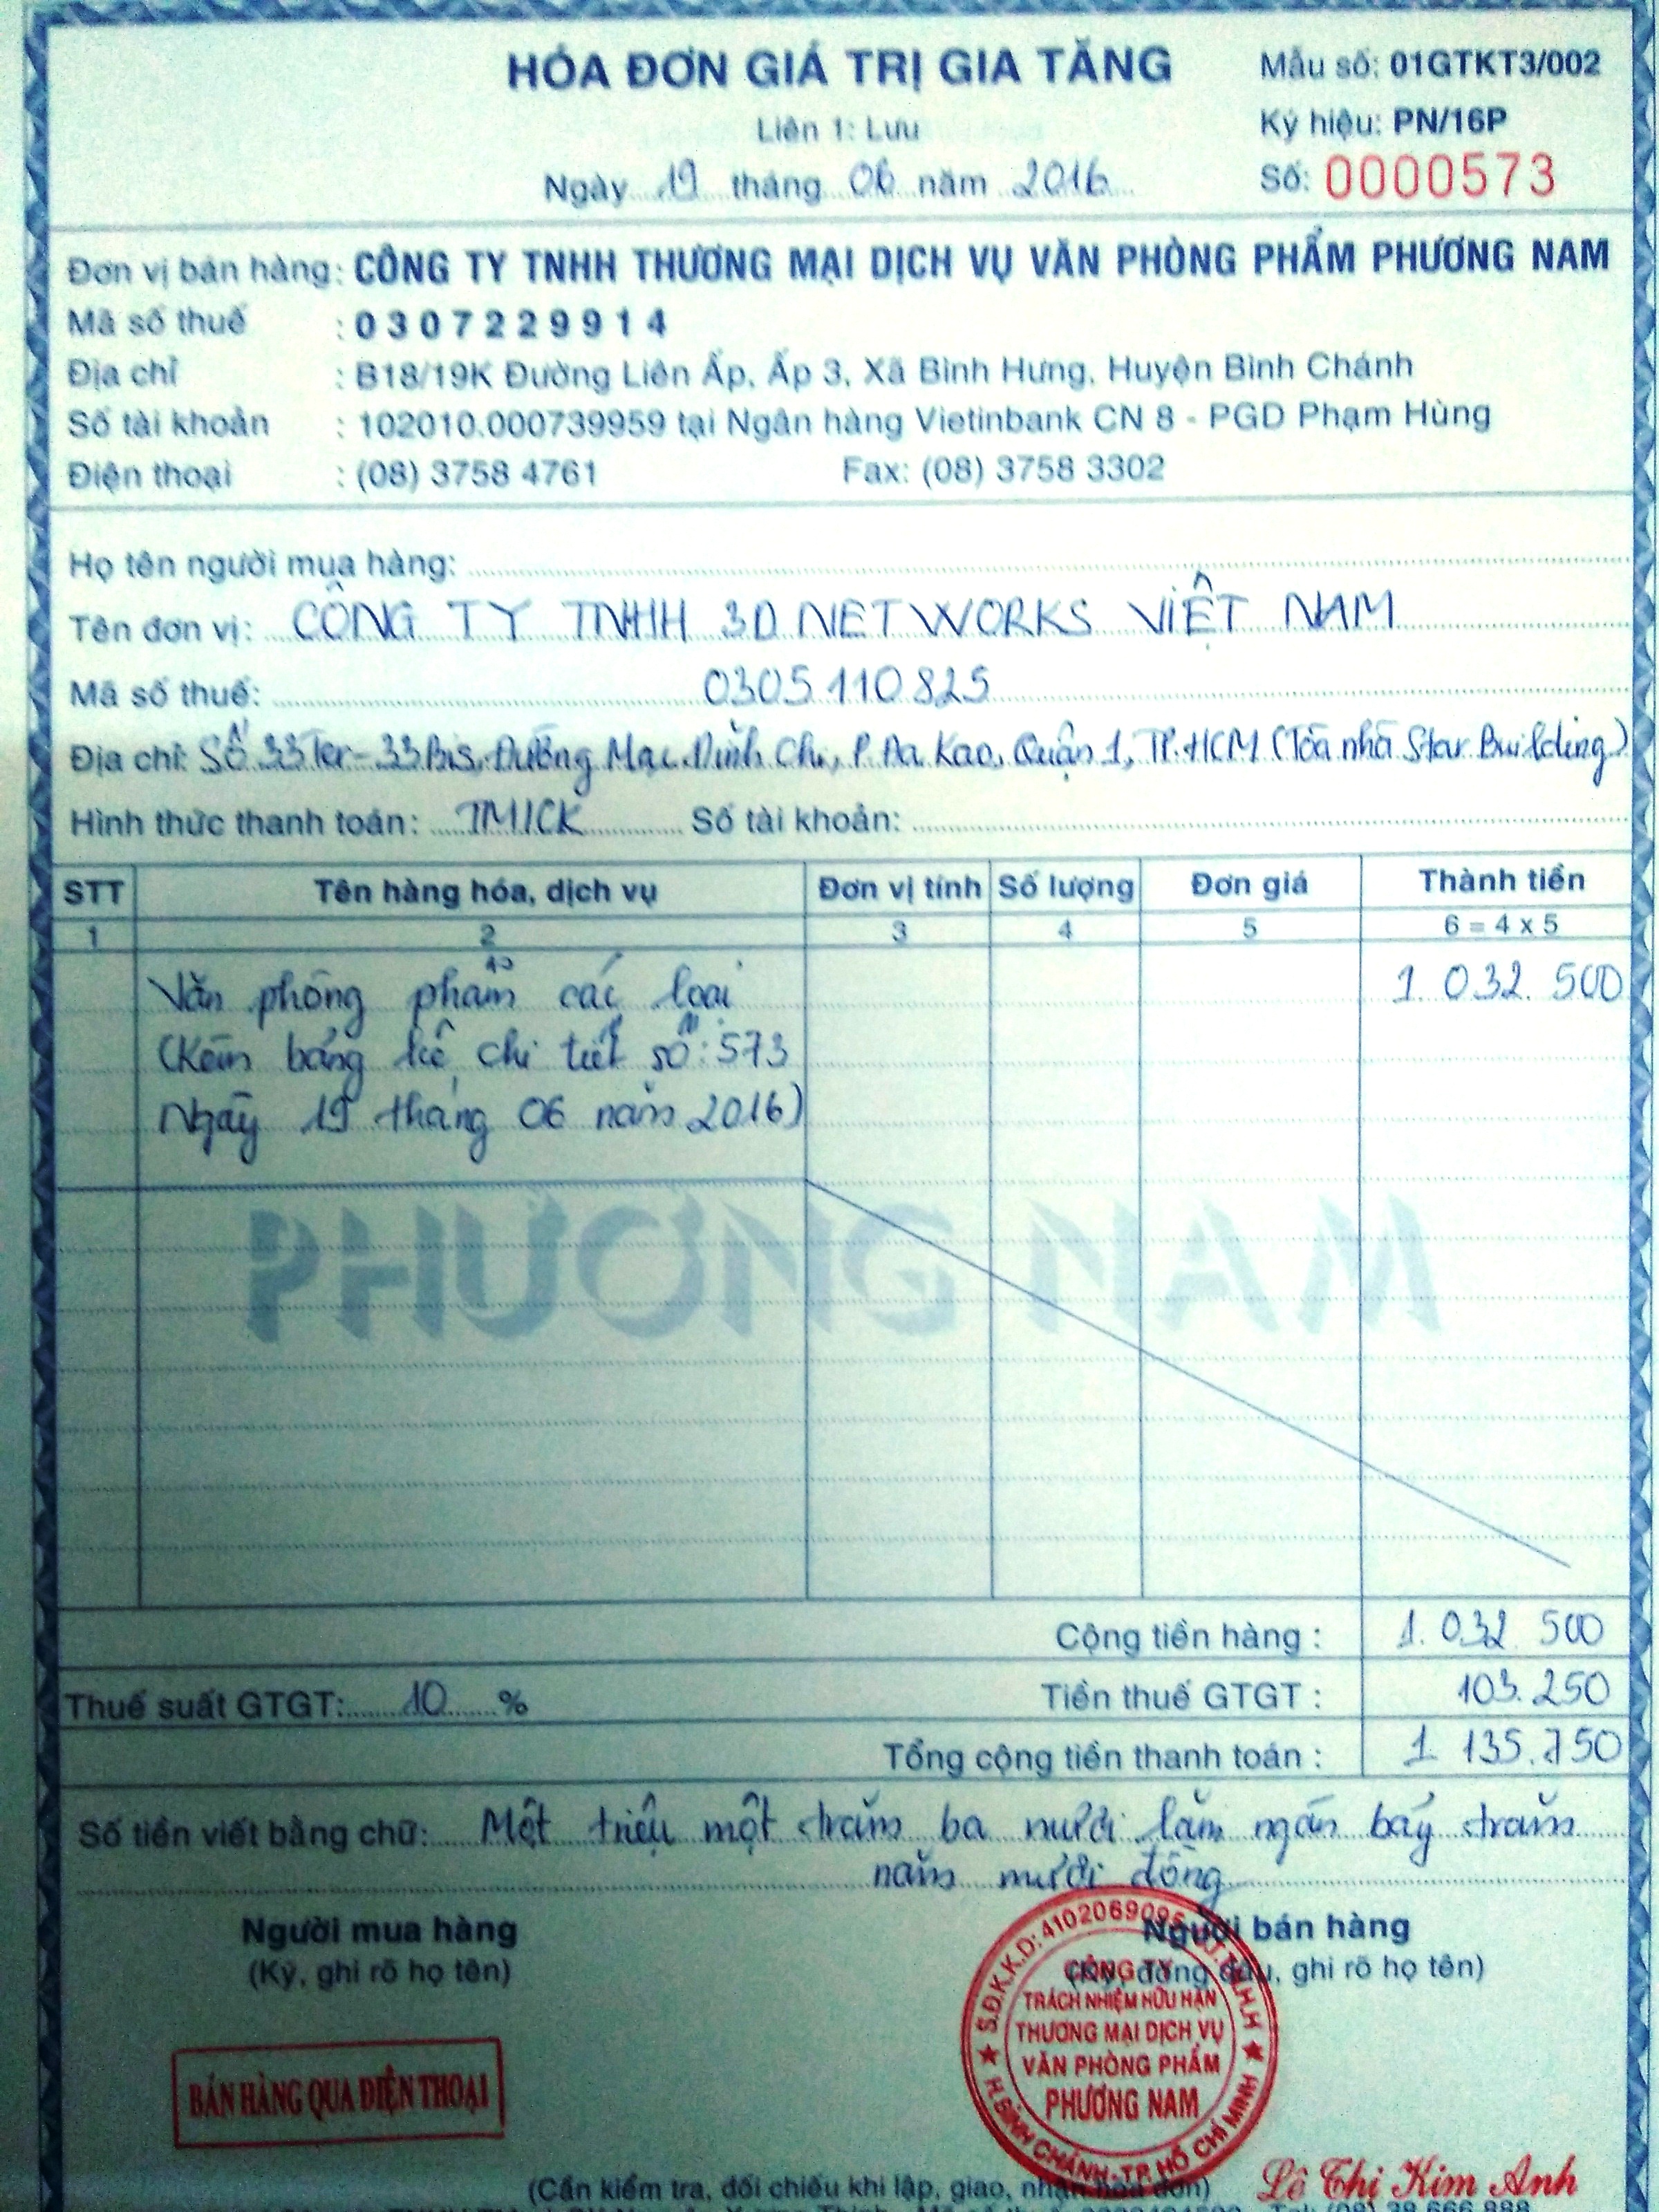 HÓA ĐƠN GIÁ TRỊ GIA TĂNG
Mẫu số: 01GTKT3/002
Liên 1: Lưu
Ký hiệu: PN/16P
Ngày 19 tháng 06 năm 2016
Số: 0000573
Đơn vị bán hàng: CÔNG TY TNHH THƯƠNG MẠI DỊCH VỤ VĂN PHÒNG PHẨM PHƯƠNG NAM
Mã số thuế : 0307229914
Địa chỉ : B18/19K Đường Liên Ấp, Ấp 3, Xã Bình Hưng, Huyện Bình Chánh
Số tài khoản : 102010.000739959 tại Ngân hàng Vietinbank CN 8 - PGD Phạm Hùng
Điện thoại : (08) 3758 4761 Fax: (08) 3758 3302
Họ tên người mua hàng:
Tên đơn vị: CÔNG TY TNHH 3D NETWORKS VIỆT NAM
Mã số thuế: 0305110825
Địa chỉ: Số 33Ter-33Bis, Đường Mạc Đĩnh Chi, P. Đa Kao, Quận 1, TP.HCM (Tòa nhà Star Building)
Hình thức thanh toán: TM/CK Số tài khoản:
STT Tên hàng hóa, dịch vụ Đơn vị tính Số lượng Đơn giá Thành tiền
1 2 3 4 5 6 = 4 x 5
Văn phòng phẩm các loại 1.032.500
(Kèm bảng kê chi tiết số: 573
Ngày 19 tháng 06 năm 2016)
PHƯƠNG NAM
Cộng tiền hàng : 1.032.500
Thuế suất GTGT: 10 % Tiền thuế GTGT : 103.250
Tổng cộng tiền thanh toán : 1.135.750
Số tiền viết bằng chữ: Một triệu một trăm ba mươi lăm ngàn bảy trăm
năm mươi đồng
Người mua hàng
(Ký, ghi rõ họ tên)
Người bán hàng
(Ký, đóng dấu, ghi rõ họ tên)
BÁN HÀNG QUA ĐIỆN THOẠI
S.Đ.K.K.D: 4102069095
CÔNG TY
TRÁCH NHIỆM HỮU HẠN
THƯƠNG MẠI DỊCH VỤ
VĂN PHÒNG PHẨM
PHƯƠNG NAM
H.BÌNH CHÁNH-TP. HỒ CHÍ MINH
(Cần kiểm tra, đối chiếu khi lập, giao, nhận hóa đơn)
Lê Thị Kim Anh